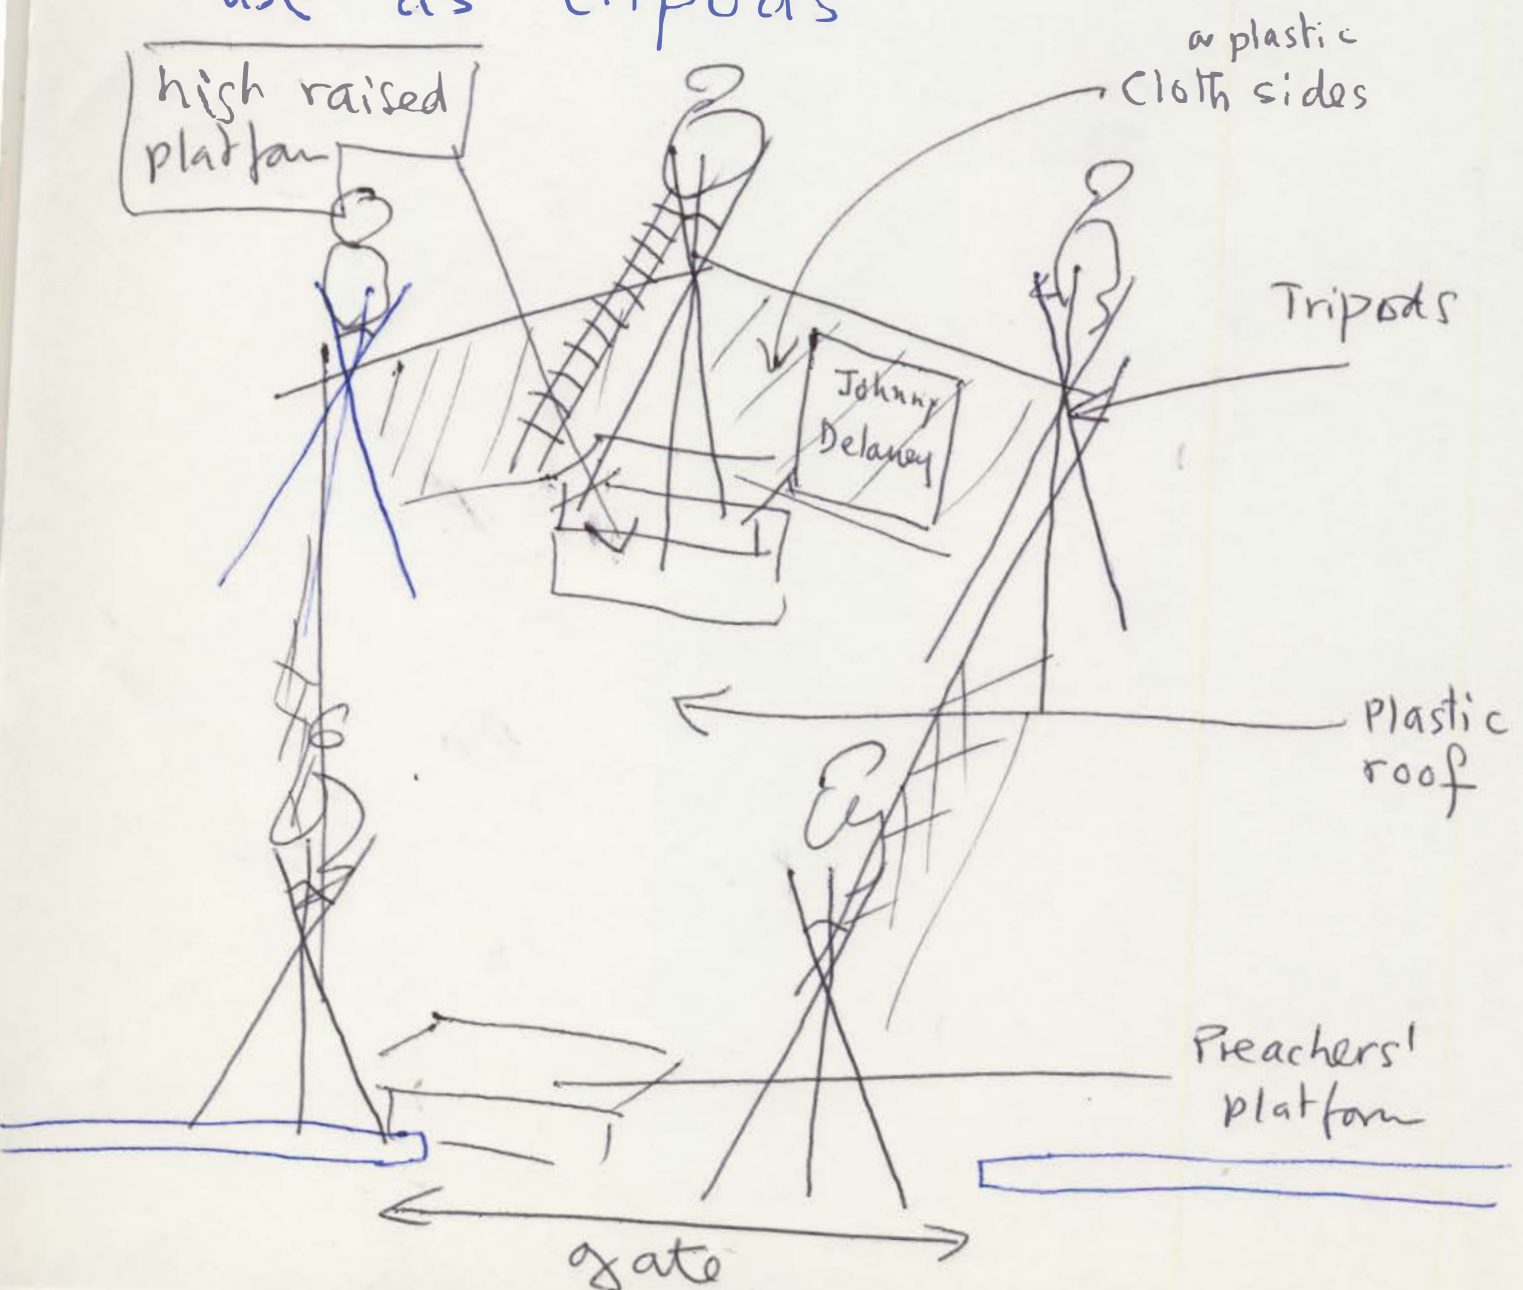 use as tripods
high raised
platform
or plastic
Cloth sides
Tripods
Johnny
Delaney
Plastic
roof
Preachers'
platform
gate